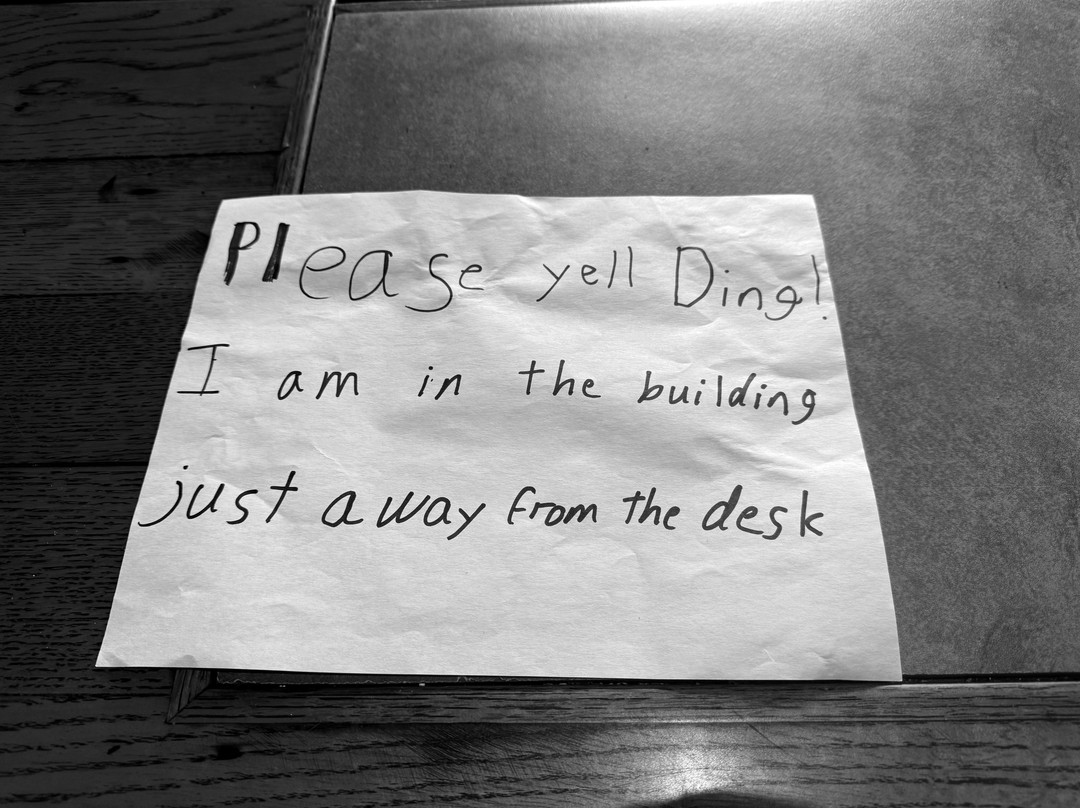 Please yell Ding!
I am in the building
just away from the desk